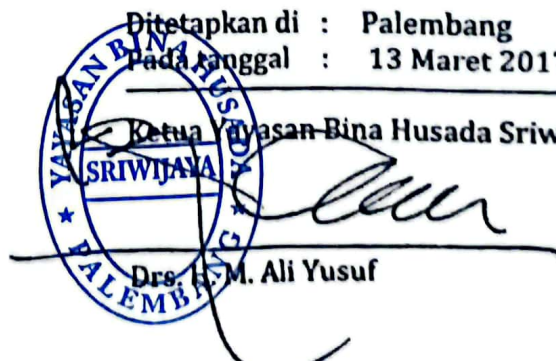 Ditetapkan di : Palembang
Pada tanggal : 13 Maret 2017
Ketua Yayasan Bina Husada Sriw
YAYASAN BINA HUSADA
SRIWIJAYA
★ PALEMBANG ★
Drs. H. M. Ali Yusuf